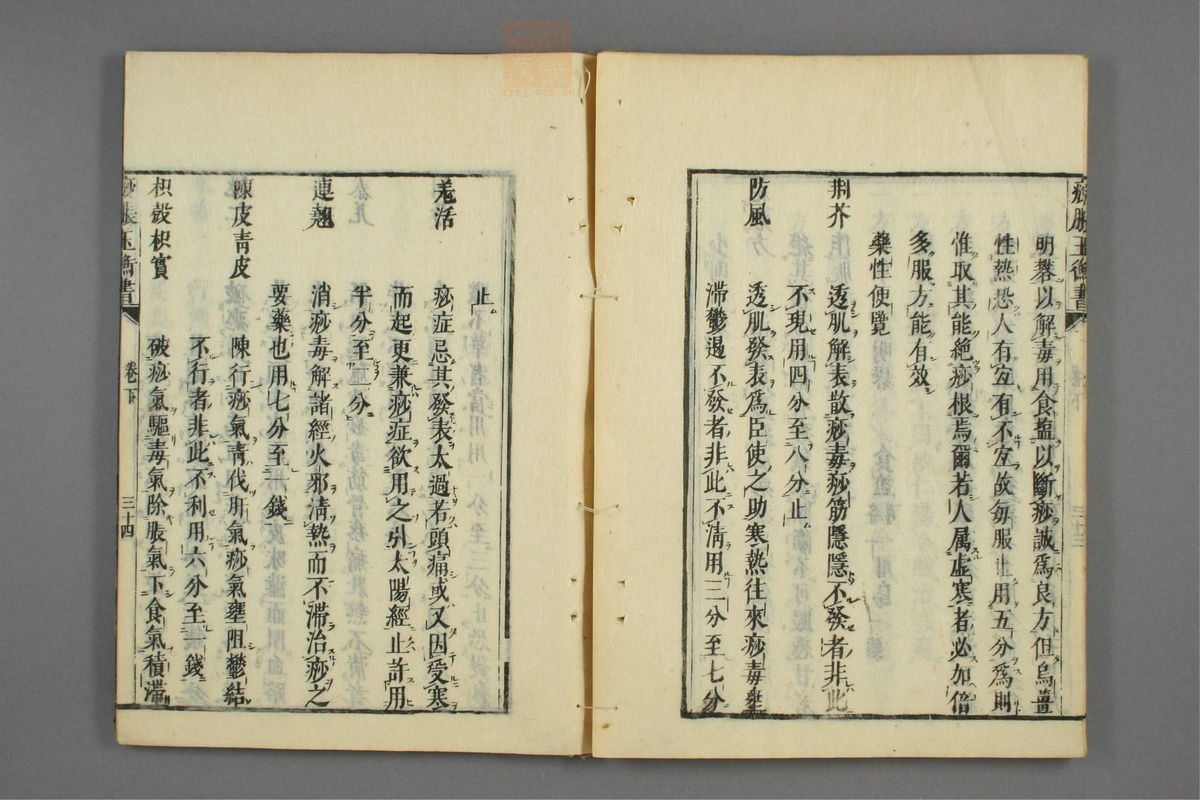 痧脹玉衡書
明礬以解毒用食塩以斷痧誠爲良方但烏薑
性熱恐人有宜有不宜故每服止用五分爲則
惟取其能絶痧根焉爾若人属虚寒者必加倍
多服方能有效
藥性便覽
荆芥　透肌解表散痧毒痧筋隱隱不發者非此
不現用四分至八分止
防風　透肌發表爲臣使之助寒熱往來痧毒壅
滯鬱遏不發者非此不清用三分至七分
止
羌活　痧症忌其發表太過若頭痛或又因受寒
而起更兼痧症欲用之引太陽經止許用
半分至二分
連翹　消痧毒解諸經火邪清熱而不滯治痧之
要藥也用七分至一錢
陳皮青皮　陳行痧氣青伐肝氣痧氣壅阻鬱結
不行者非此不利用六分至一錢
枳殼枳實　破痧氣驅毒氣除脹氣下食氣積滯
痧脹玉衡書　卷下　三十四